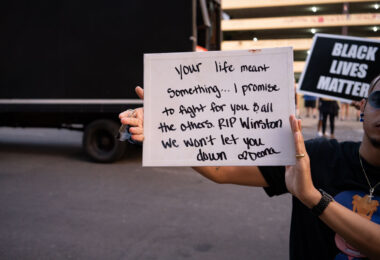 your life meant
something... I promise
to fight for you & all
the others. RIP Winston
we won't let you
down
BLACK
LIVES
MATTER